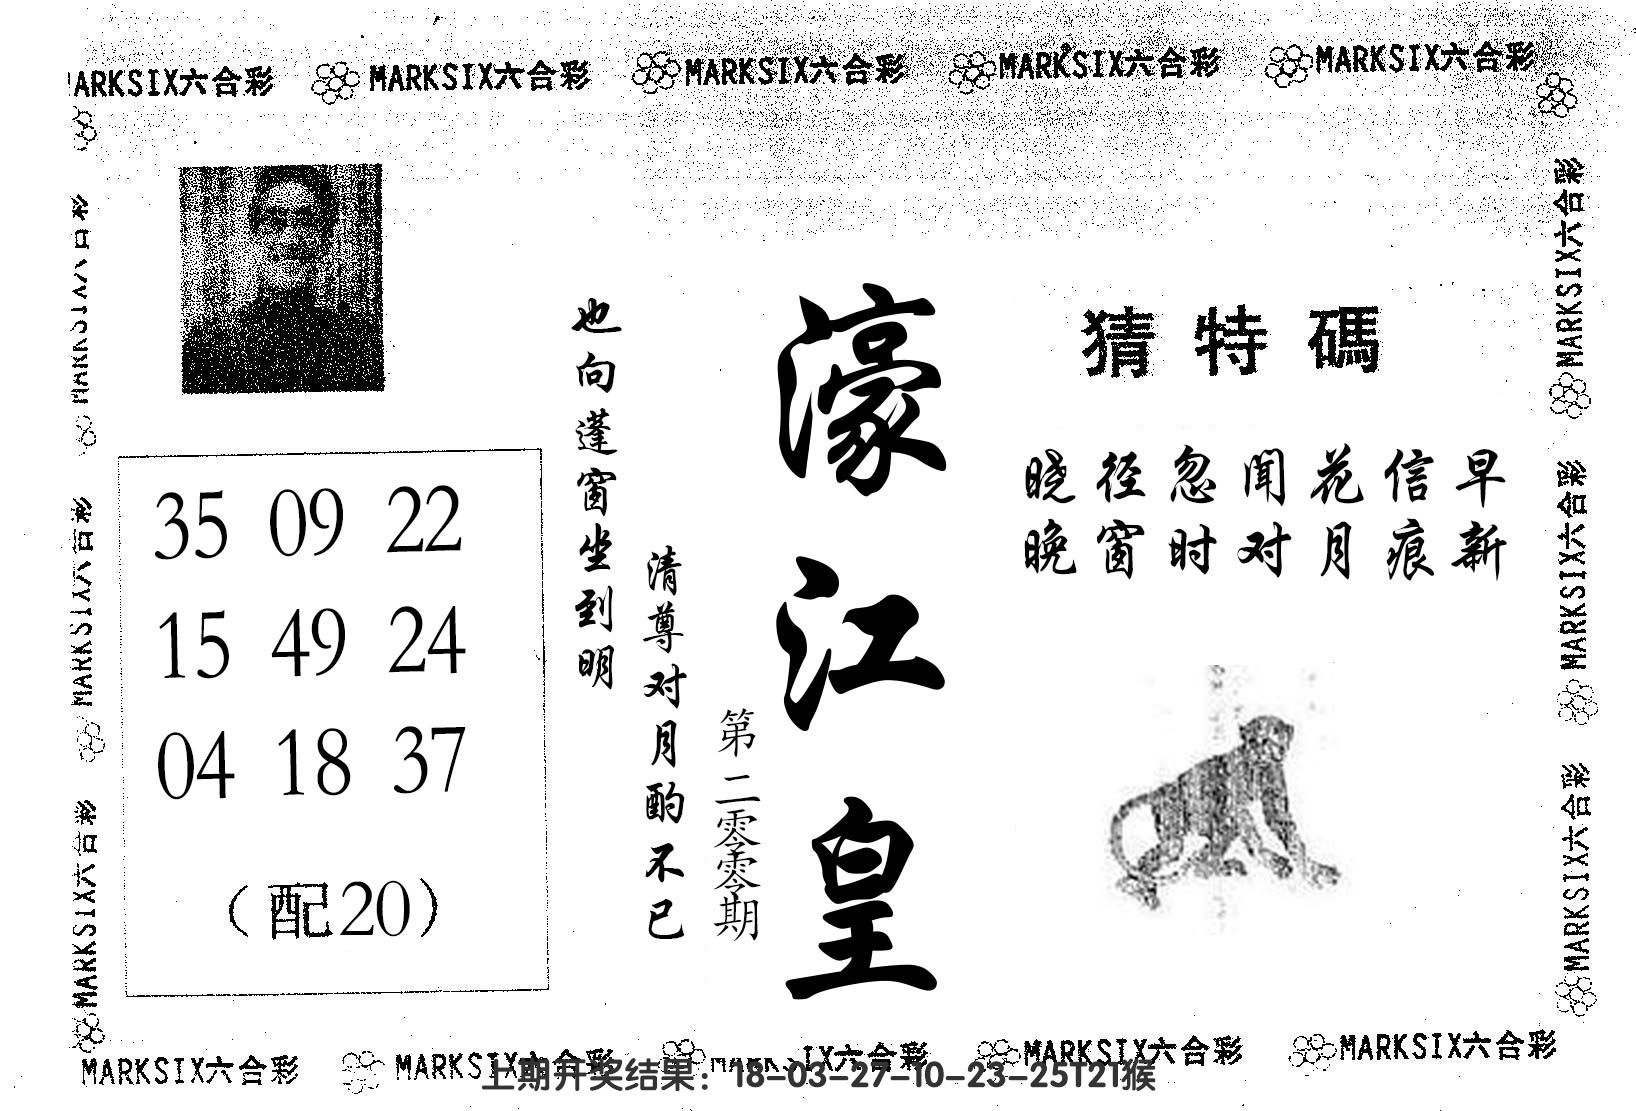 MARKSIX六合彩 MARKSIX六合彩 MARKSIX六合彩 MARKSIX六合彩 MARKSIX六合彩
猜特碼
晓径忽闻花信早
晚窗时对月痕新
濠江皇
第二零零期
清尊对月酌不已
也向蓬窗坐到明
35 09 22
15 49 24
04 18 37
（配20）
MARKSIX六合彩 MARKSIX六合彩 MARKSIX六合彩
MARKSIX六合彩 MARKSIX六合彩 MARKSIX六合彩
MARKSIX六合彩 MARKSIX六合彩 MARKSIX六合彩 MARKSIX六合彩 MARKSIX六合彩
上期开奖结果：18-03-27-10-23-25T21猴